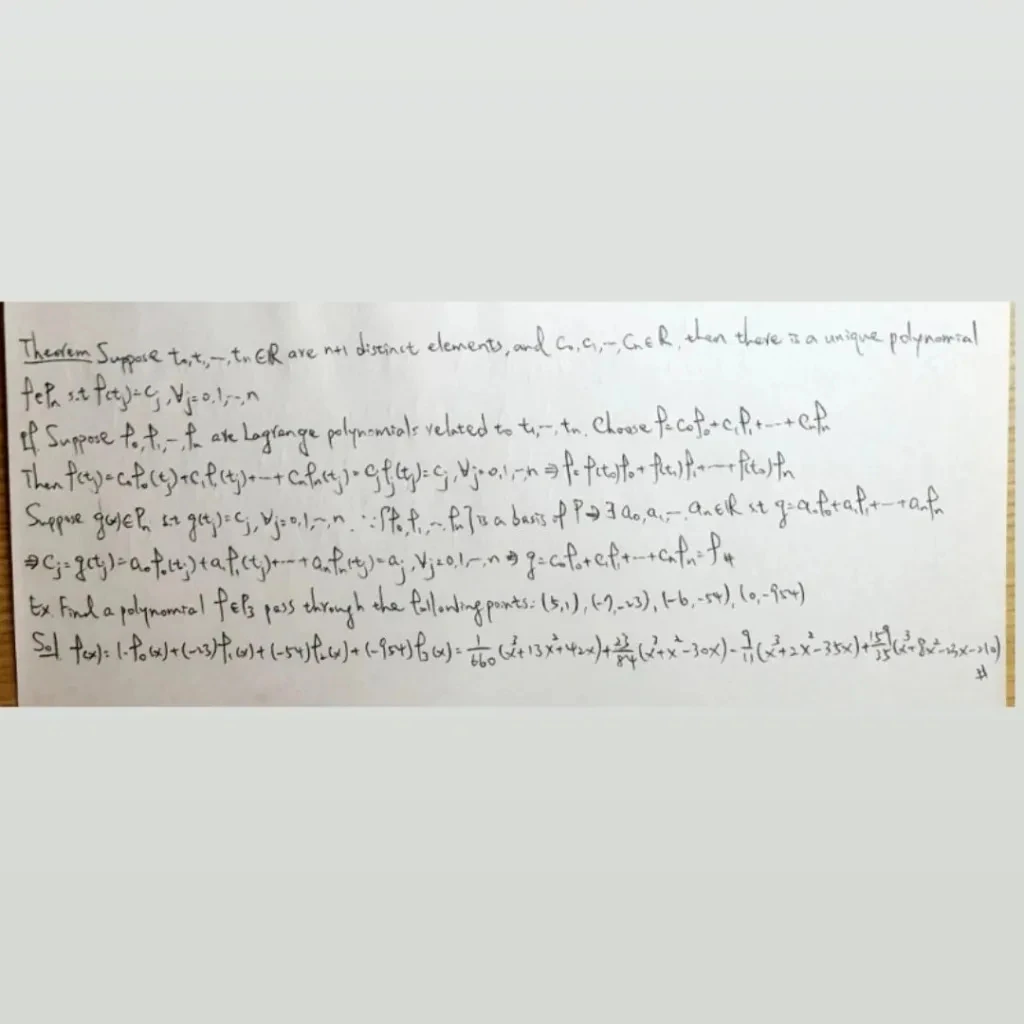 Theorem Suppose t₀,t₁,⋯,tₙ∈ℝ are n+1 distinct elements, and C₀,C₁,⋯,Cₙ∈ℝ, then there is a unique polynomial
f∈Pₙ s.t f(tⱼ)=Cⱼ, ∀j=0,1,⋯,n
Pf. Suppose f₀,f₁,⋯,fₙ are Lagrange polynomials related to t₁,⋯,tₙ. Choose f=C₀f₀+C₁f₁+⋯+Cₙfₙ
Then f(tⱼ)=C₀f₀(tⱼ)+C₁f₁(tⱼ)+⋯+Cₙfₙ(tⱼ)=Cⱼfⱼ(tⱼ)=Cⱼ, ∀j=0,1,⋯,n ⇒ f=f(t₀)f₀+f(t₁)f₁+⋯+f(tₙ)fₙ
Suppose g(x)∈Pₙ s.t g(tⱼ)=Cⱼ, ∀j=0,1,⋯,n. ∵{f₀,f₁,⋯,fₙ} is a basis of P ⇒ ∃ a₀,a₁,⋯,aₙ∈ℝ st g=a₀f₀+a₁f₁+⋯+aₙfₙ
⇒Cⱼ=g(tⱼ)=a₀f₀(tⱼ)+a₁f₁(tⱼ)+⋯+aₙfₙ(tⱼ)=aⱼ, ∀j=0,1,⋯,n ⇒ g=C₀f₀+C₁f₁+⋯+Cₙfₙ=f #
Ex. Find a polynomial f∈P₃ pass through the following points: (5,1), (-7,-23), (-6,-54), (0,-954)
Sol f(x)=1·f₀(x)+(-23)f₁(x)+(-54)f₂(x)+(-954)f₃(x)=1/660(x³+13x²+42x)+23/84(x³+x²-30x)-9/11(x³+2x²-35x)+159/35(x³+8x²-23x-210) #